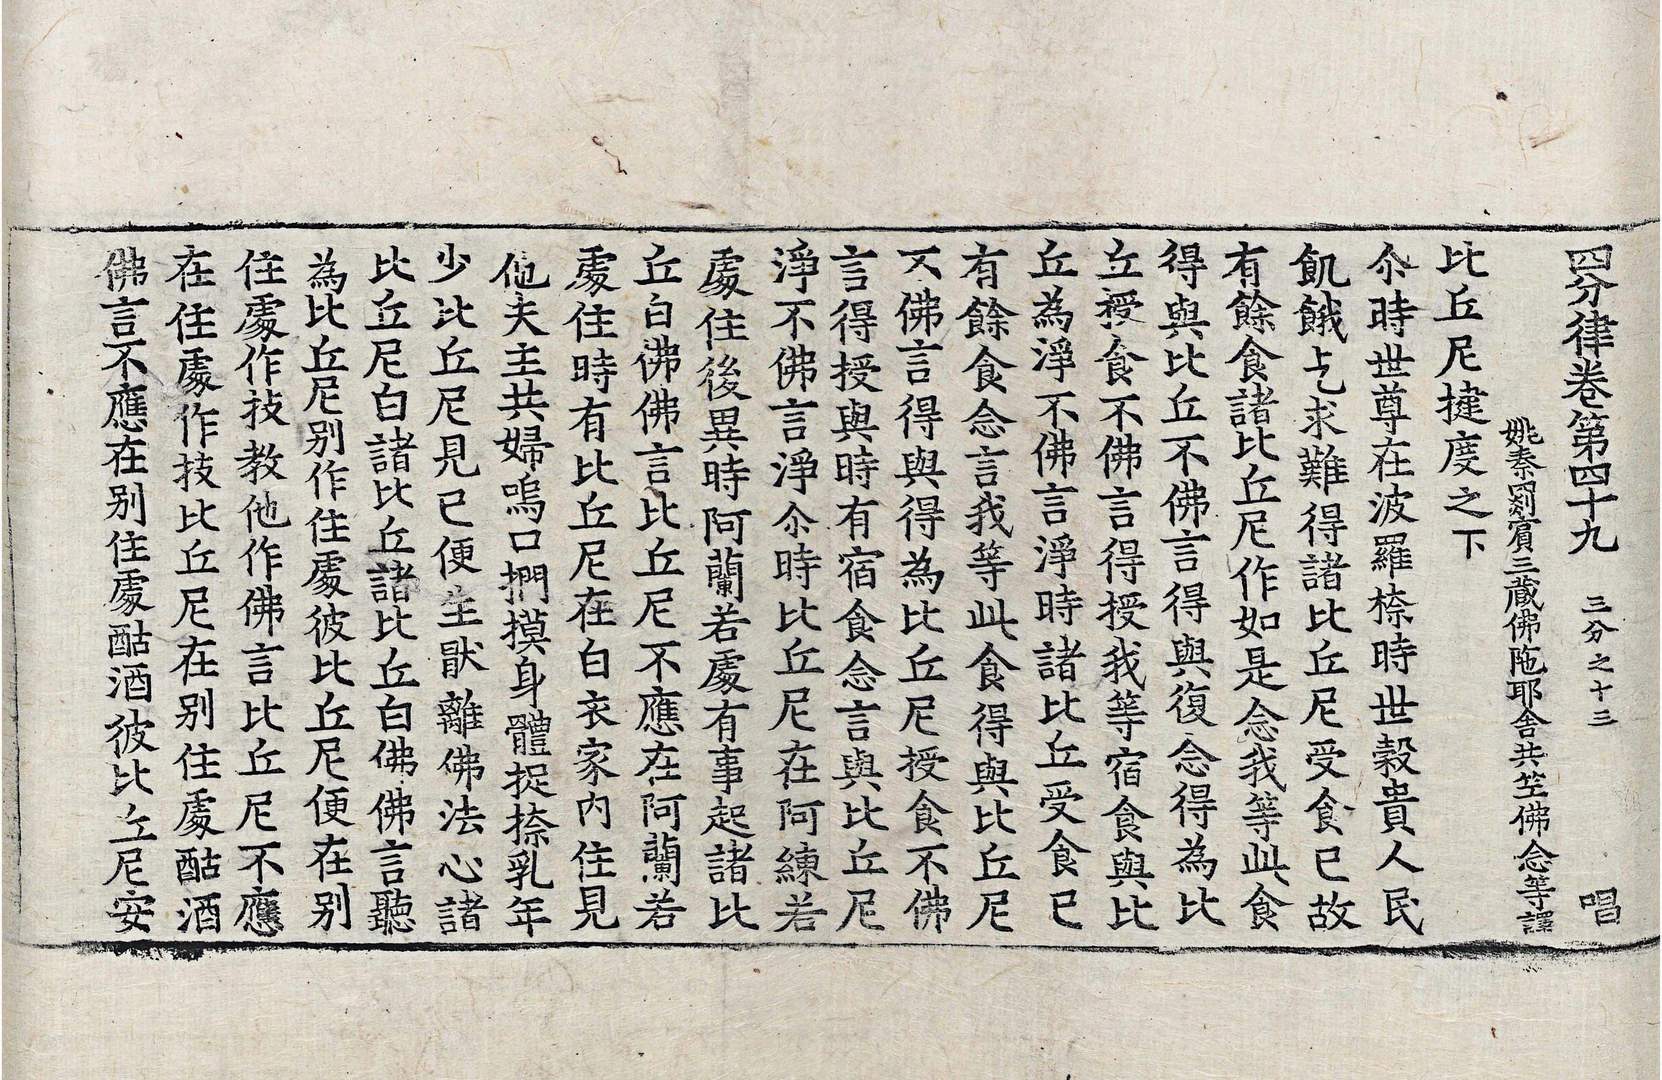 四分律卷第四十九 三分之十三 唱
姚秦罽賓三藏佛陁耶舍共笁佛念等譯
比丘尼揵度之下
尒時世尊在波羅㮈時世榖貴人民
飢餓乞求難得諸比丘尼受食已故
有餘食諸比丘尼作如是念我等此食
得與比丘不佛言得與復念得為比
丘授食不佛言得授我等宿食與比
丘為淨不佛言淨時諸比丘受食已
有餘食念言我等此食得與比丘尼
不佛言得與得為比丘尼授食不佛
言得授與時有宿食念言與比丘尼
淨不佛言淨尒時比丘尼在阿練若
處住後異時阿蘭若處有事起諸比
丘白佛佛言比丘尼不應在阿蘭若
處住時有比丘尼在白衣家內住見
他夫主共婦嗚口捫摸身體捉捺乳年
少比丘尼見已便生猒離佛法心諸
比丘尼白諸比丘諸比丘白佛佛言聽
為比丘尼别作住處彼比丘尼便在别
住處作技教他作佛言比丘尼不應
在住處作技比丘尼在别住處酤酒
佛言不應在别住處酤酒彼比丘尼安